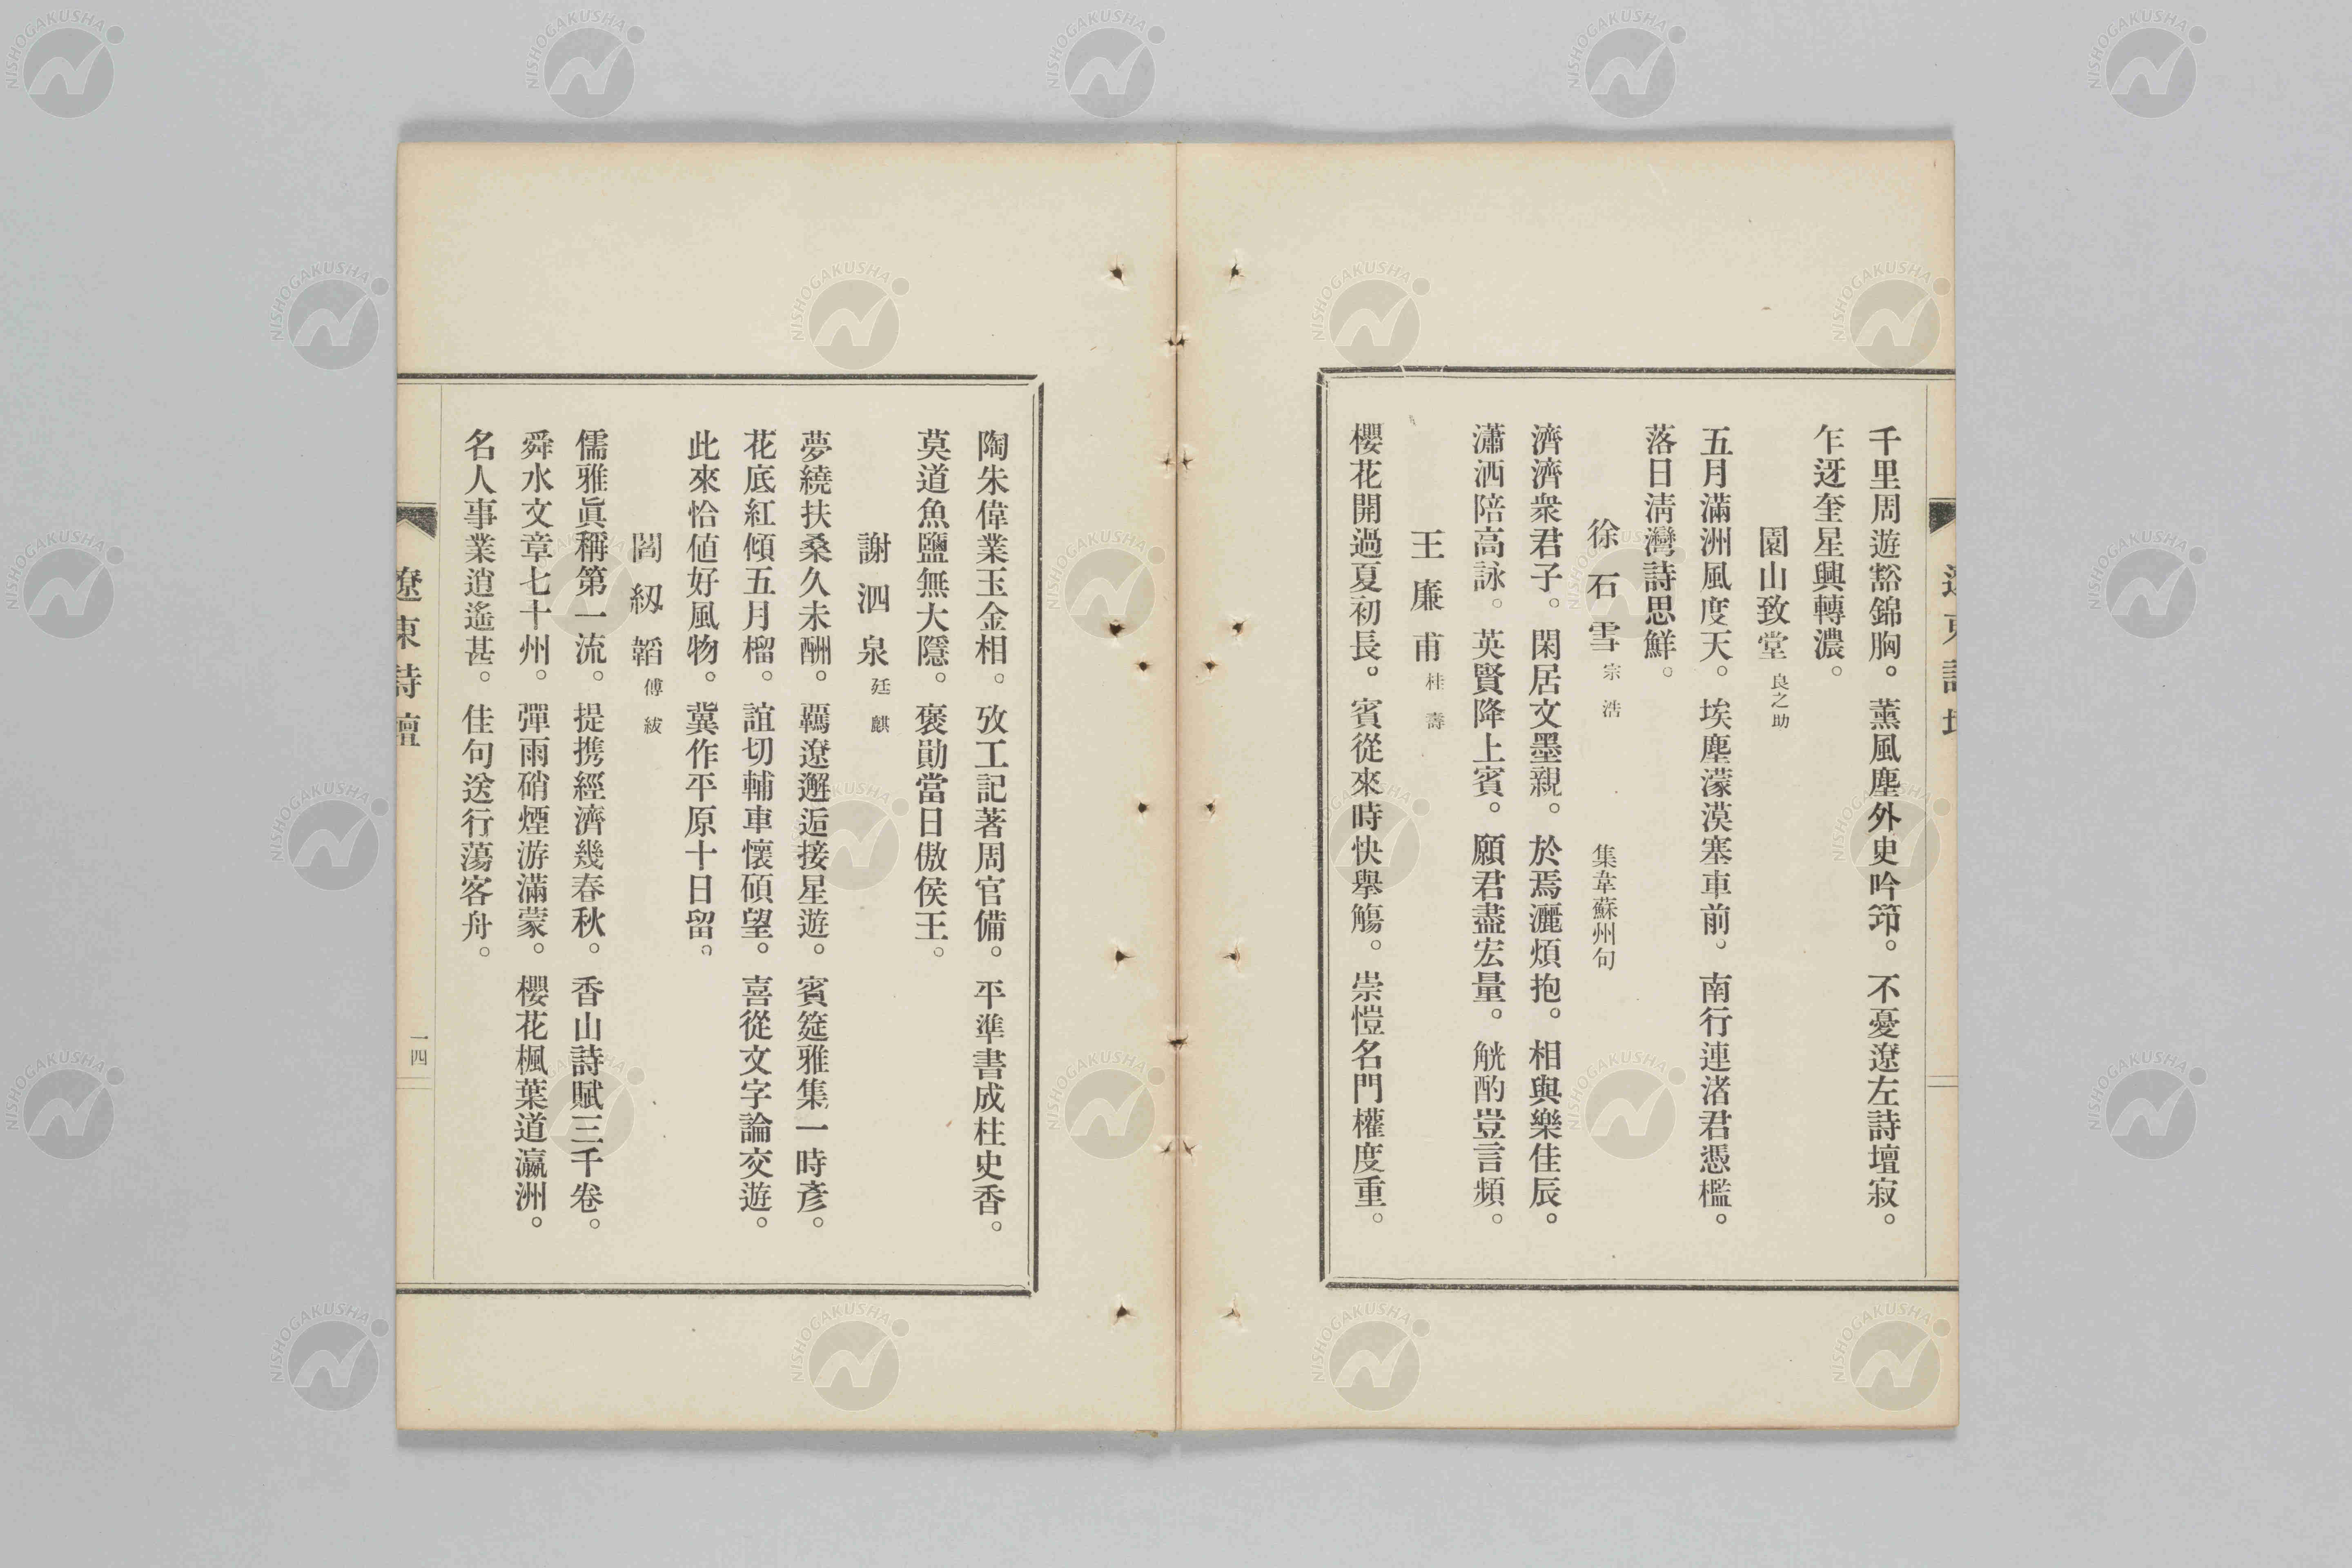 千里周遊豁錦胸。薰風塵外史吟笻。不憂遼左詩壇寂。
乍迓奎星興轉濃。
園山致堂 良之助
五月滿洲風度天。埃塵濛漠塞車前。南行連渚君憑檻。
落日淸灣詩思鮮。
徐石雪 宗浩 集韋蘇州句
濟濟衆君子。閑居文墨親。於焉灑煩抱。相與樂佳辰。
瀟洒陪高詠。英賢降上賓。願君盡宏量。觥酌豈言頻。
王廉甫 桂壽
櫻花開過夏初長。賓從來時快擧觴。崇愷名門權度重。
陶朱偉業玉金相。攷工記著周官備。平準書成柱史香。
莫道魚鹽無大隱。褒勛當日傲侯王。
謝泗泉 廷麒
夢繞扶桑久未酬。羈遼邂逅接星遊。賓筵雅集一時彥。
花底紅傾五月榴。誼切輔車懷碩望。喜從文字論交遊。
此來恰値好風物。冀作平原十日留。
闊紉韜 傅紱
儒雅眞稱第一流。提携經濟幾春秋。香山詩賦三千卷。
舜水文章七十州。彈雨硝煙游滿蒙。櫻花楓葉道瀛洲。
名人事業逍遙甚。佳句送行蕩客舟。
遼東詩壇
一四
NISHOGAKUSHA